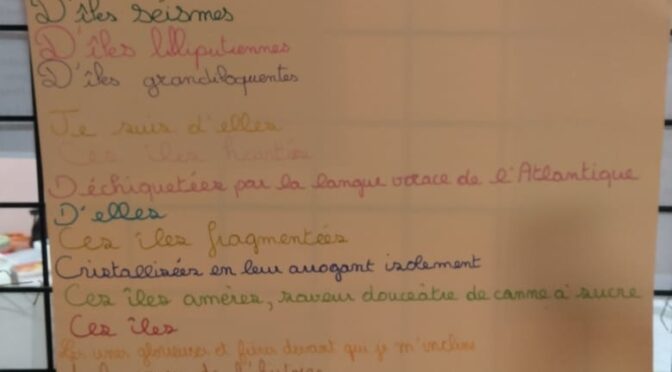 D'îles séismes
D'îles lilliputiennes
D'îles grandiloquentes
Je suis d'elles
Ces îles
Déchiquetées par la langue vorace de l'Atlantique
D'elles
Ces îles fragmentées
Cristallisées en leur arrogant isolement
Ces îles amères, saveur douceâtre de canne à sucre
Ces îles
Les unes glorieuses et fières devant qui je m'incline
de l'histoire